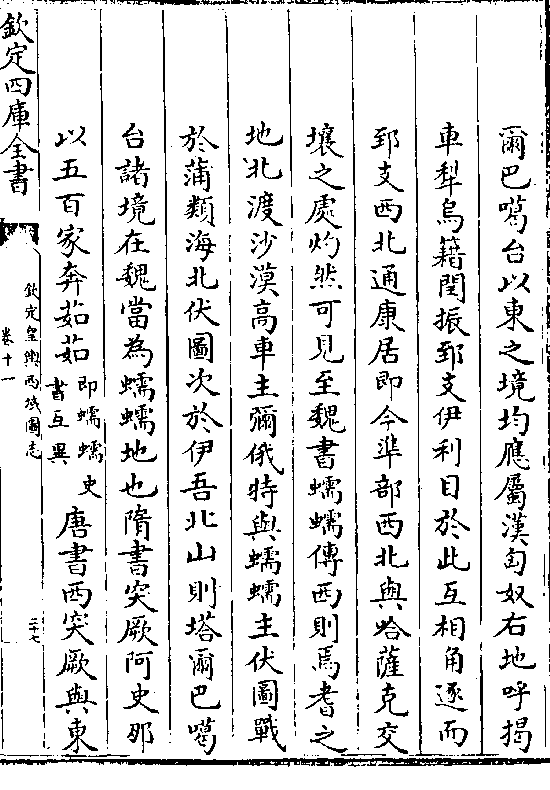 爾巴噶台以東之境均應屬漢匈奴右地呼揭
車犁烏籍閏振郅支伊利目於此互相角逐而
郅支西北通康居即今準部西北與哈薩克交
壤之處灼然可見至魏書蠕蠕傳西則焉耆之
地北渡沙漠高車主彌俄特與蠕蠕主伏圖戰
於蒲類海北伏圖次於伊吾北山則塔爾巴噶
台諸境在魏當為蠕蠕地也隋書突厥阿史那
以五百家奔茹茹即蠕蠕史書互異唐書西突厥與東
欽定四庫全書
欽定皇輿西域圖志
卷十一
二十七